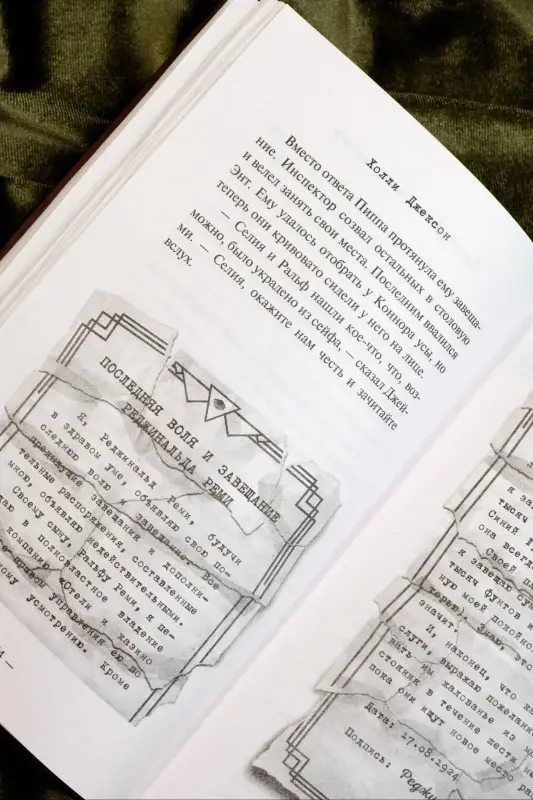 Холли Джексон
Вместо ответа Пиппа протянула ему завеща-
ние. Инспектор созвал остальных в столовую
и велел занять свои места. Последним ввалился
Энт. Ему удалось отобрать у Коннора усы, но
теперь они кривовато сидели у него на лице.
— Селия и Ральф нашли кое-что, что, воз-
можно, было украдено из сейфа, — сказал Джей-
ми. — Селия, окажите нам честь и зачитайте
вслух.
ПОСЛЕДНЯЯ ВОЛЯ И ЗАВЕЩАНИЕ
РЕДЖИНАЛЬДА РЕМИ
Я, Реджинальд Реми, будучи
в здравом уме, объявляю свою по-
следнюю волю и завещание. Все
предыдущие завещания и дополни-
тельные распоряжения, составленные
мною, объявляю недействительными.
Своему сыну, Ральфу Реми, я пе-
в полновластное владение
компанию «Отели и казино
управления ею по
усмотрению. Кроме
4 —
я за
тысяч
Синий
она всегд
Своей п
я завещаю
тысяч фунтов и
ную моей покойно
Знаю, это
значит.
И, наконец, что ка
слуги, выражаю пожелани
им жалованье из мо
стояния в течение шести ме
пока они ищут новое место ра
Дата: 17.08.1924
Подпись: Реджи